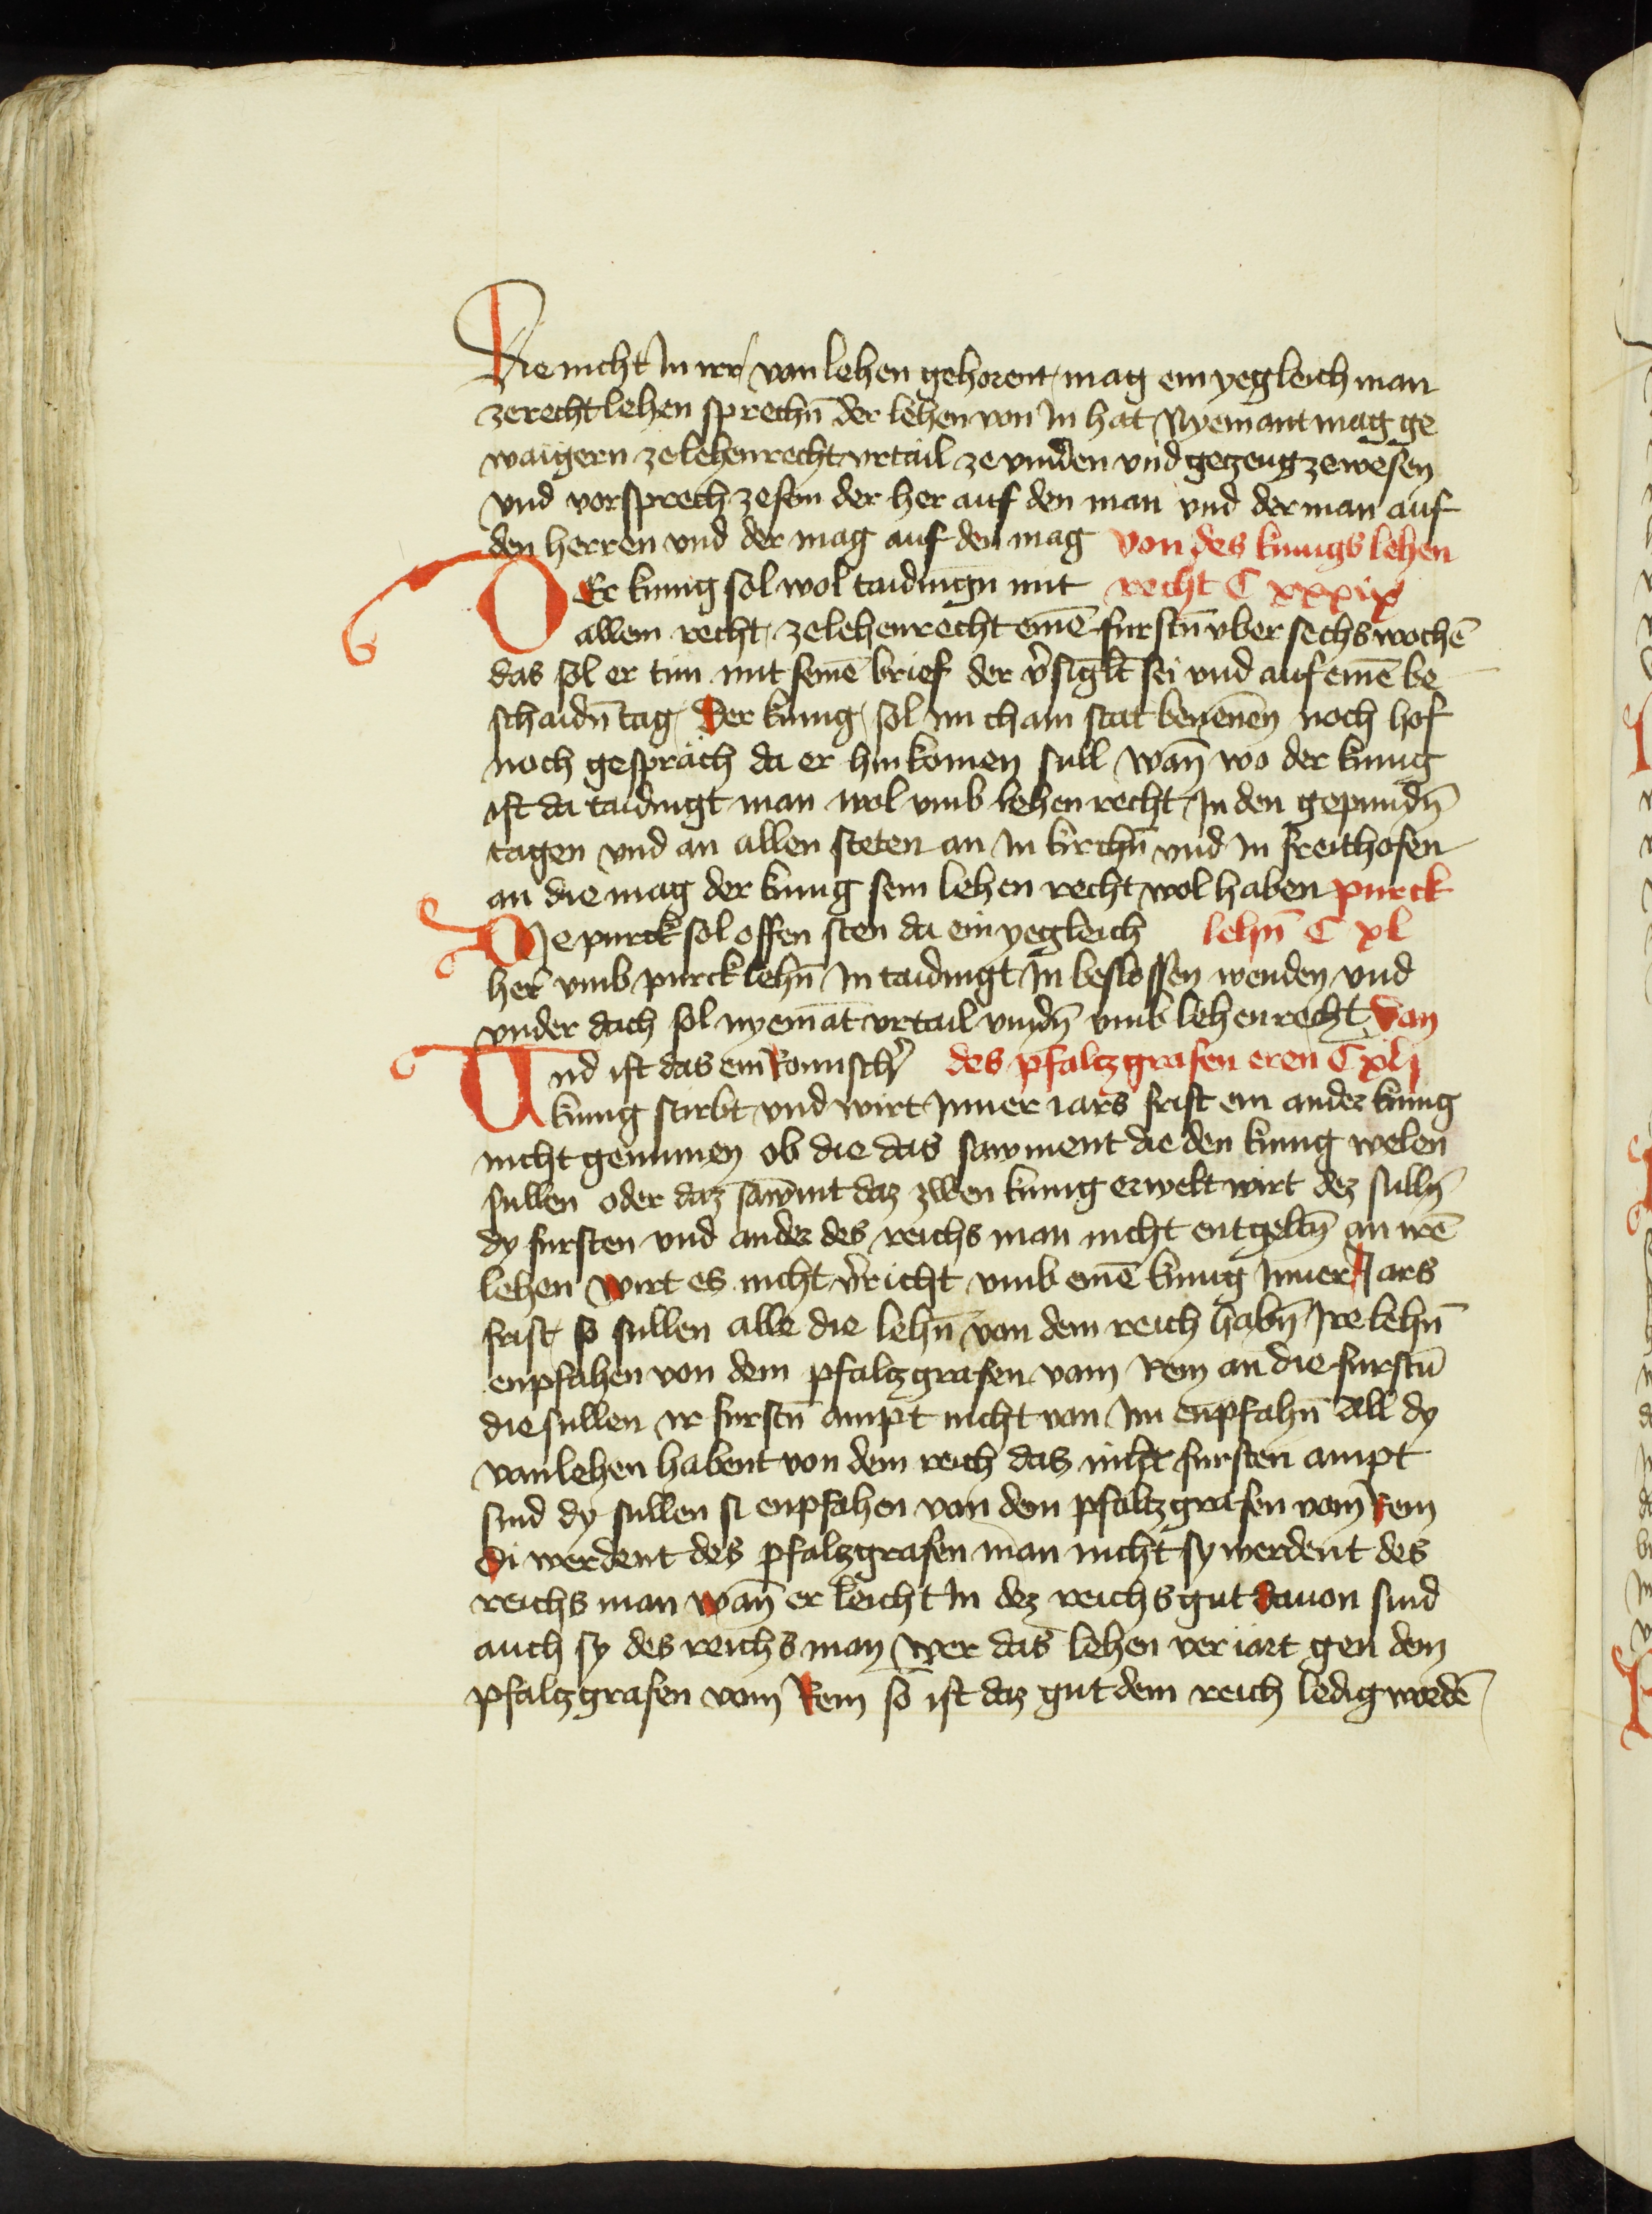 Die nicht In irr van lehen gehorent mag ein yegleich man
ze recht lehen sprechn̄ der lehen von In hat Nyemant mag ge
waigern ze lehenrecht vrtail ze vinden vnd gezeug ze wesen
vnd vorsprech ze sein der her auf den man vnd der man auf
den herren vnd der mag auf den mag von des kunigs lehen
DEr kunig sol wol taidingn̄ mit recht C xxxix
allem recht ze lehenrecht einē furstn̄ vber sechs wochē
das sol er tun mit seinē brief der v̉siglt̄ sei vnd auf einē be
schaidn̄ tag Der kunig sol im cham stat benenēn noch hof
noch gespräch da er hin komen sull wan̄ wo der kunig
ist da taidingt man wol vmb lehen recht In den gepundn̄
tagen vnd an allen steten an In kirchn̄ vnd In freithofen
an die mag der kunig sein lehen recht wol haben purck
DIe purck sol offen sten da ein yegleich lehn̄ C xl
her̄ vmb purcklehn̄ In taidingt In beslossen wenden vnd
vnder dach sol nyemāt vrtail vindn̄ vmb lehenrecht Van
Vnd ist das ein Romischr̉ des pfaltzgrafen eren C xlj
kunig stirbt vnd wirt Inner iars frist ein ander kunig
nicht genumen ob die das sawment die den kunig welen
sullen oder daz saw̄nt daz zwen kunig erwelt wirt dez sulln̄
dy fursten vnd ander des reichs man nicht entgeltn̄ an irē
lehen wirt es nicht v̉richt vmb einē kunig Inner Jars
frist so sullen alle die lehn̄ von dem reich habn̄ Ire lehn̄
enpfahen von dem pfaltzgrafen vam Rein an die furstn̄
die sullen ir furstn̄ ampt nicht van Im enpfahn̄ All dy
vanlehen habent von dem reich das nicht fursten ampt
sind dy sullen si enpfahen van dem pfaltzgrafen vam Rein
Di werdent des pfalzgrafen man nicht sy werdent des
reichs man wan̄ er leicht In dez reichs gut Dauon sind
auch sy des reichs man wer das lehen veriart gen dem
pfaltzgrafen vam Rein so ist daz gut dem reich ledig wordē